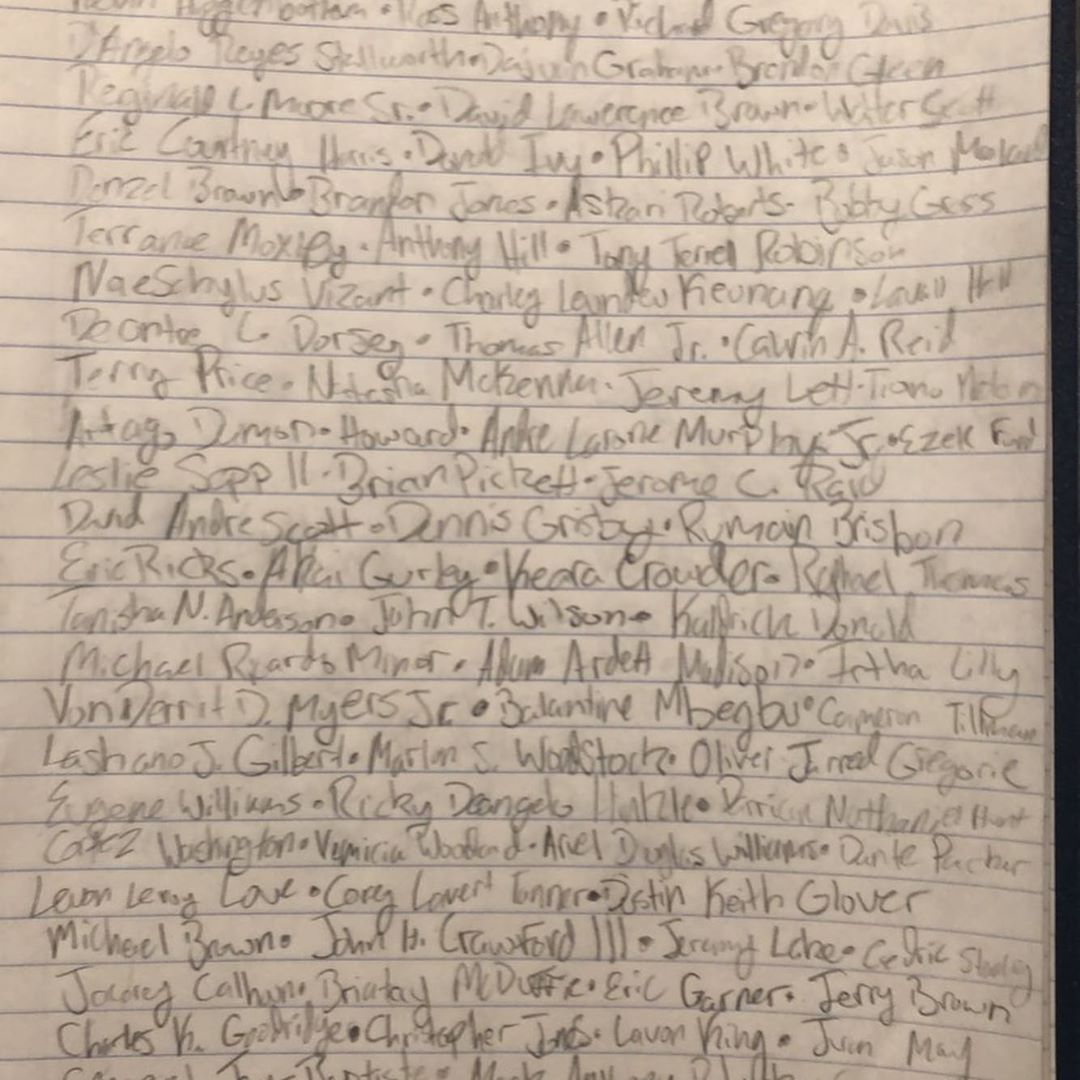 Anthony • Gregory Davis
D'Angelo Reyes Stallworth • Graham • Brandon Glenn
Reginald L. Moore Sr. • David Lawerence Brown • Walter Scott
Eric Courtney Harris • Donald Ivy • Phillip White • Jason
Denzel Brown • Brandon Jones • Askari Roberts • Bobby Gross
Terrance Moxley • Anthony Hill • Tony Terrell Robinson
Naeschylus Vizant • Charley Leundeu Keunang • Lavall Hall
Deontae L. Dorsey • Thomas Allen Jr. • Calvin A. Reid
Terry Price • Natasha McKenna • Jeremy Lett •
Artago Damon Howard • Andre Larone Murphy Sr. • Ezell Ford
Leslie Sapp III • Brian Pickett • Jerome C. Reid
David Andre Scott • Dennis Grigsby • Rumain Brisbon
Eric Ricks • Akai Gurley • Keara Crowder • Raphael Thomas
Tanisha N. Anderson • John T. Wilson • Kaldrick Donald
Michael Ricardo Minor • Adam Ardett Madison • Iretha Lilly
VonDerrit D. Myers Jr. • Balantine Mbegbu • Cameron Tillman
Lashano J. Gilbert • Marlon S. Woodstock • Oliver Jarred Gregoire
Eugene Williams • Ricky Deangelo Hinkle • Nathaniel Hunt
Washington • Vernicia Woodard • Ariel Douglas Williams • Dante Parker
Levon Leroy Love • Corey Lovert Tanner • Dustin Keith Glover
Michael Brown • John H. Crawford III • Jeremy Lake •
Jacorey Calhoun • Briatay McDuffie • Eric Garner • Jerry Brown
Charles K. Goodridge • Christopher Jones • Lavon King • Juan May